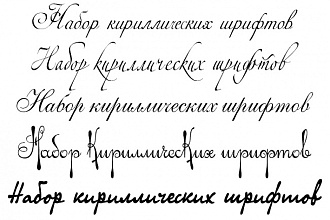 Набор кириллических шрифтов
Набор кириллических шрифтов
Набор кириллических шрифтов
Набор Кириллических шрифтов
Набор кириллических шрифтов